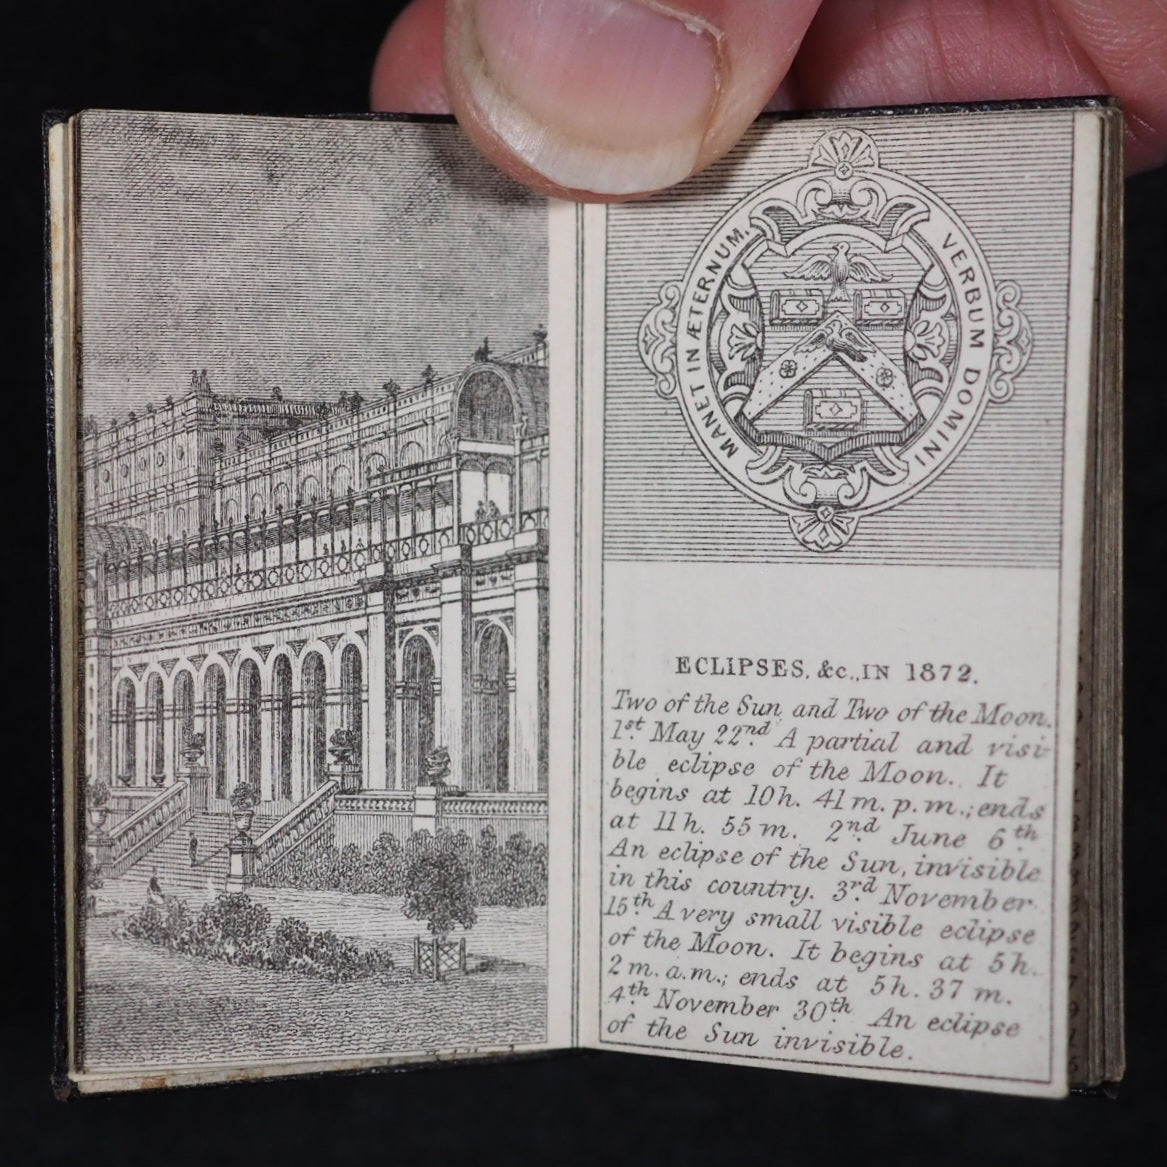 VERBUM DOMINI
MANET IN ÆTERNUM.
ECLIPSES, &c., IN 1872.
Two of the Sun and Two of the Moon.
1st May 22nd A partial and visi-
ble eclipse of the Moon. It
begins at 10h. 41m. p.m.; ends
at 11h. 55m. 2nd June 6th
An eclipse of the Sun, invisible
in this country. 3rd November
15th A very small visible eclipse
of the Moon. It begins at 5h.
2m. a.m.; ends at 5h. 37m.
4th November 30th An eclipse
of the Sun invisible.